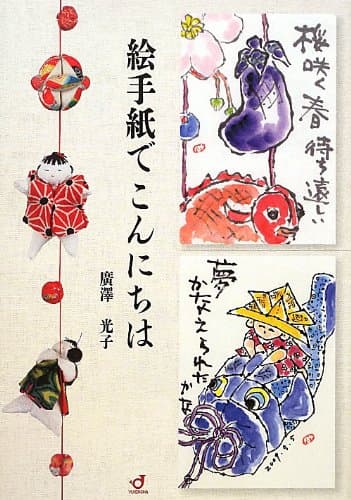 絵手紙でこんにちは
廣澤 光子
桜咲く春待ち遠しい
夢
かなえられた
かな
2009.5.5